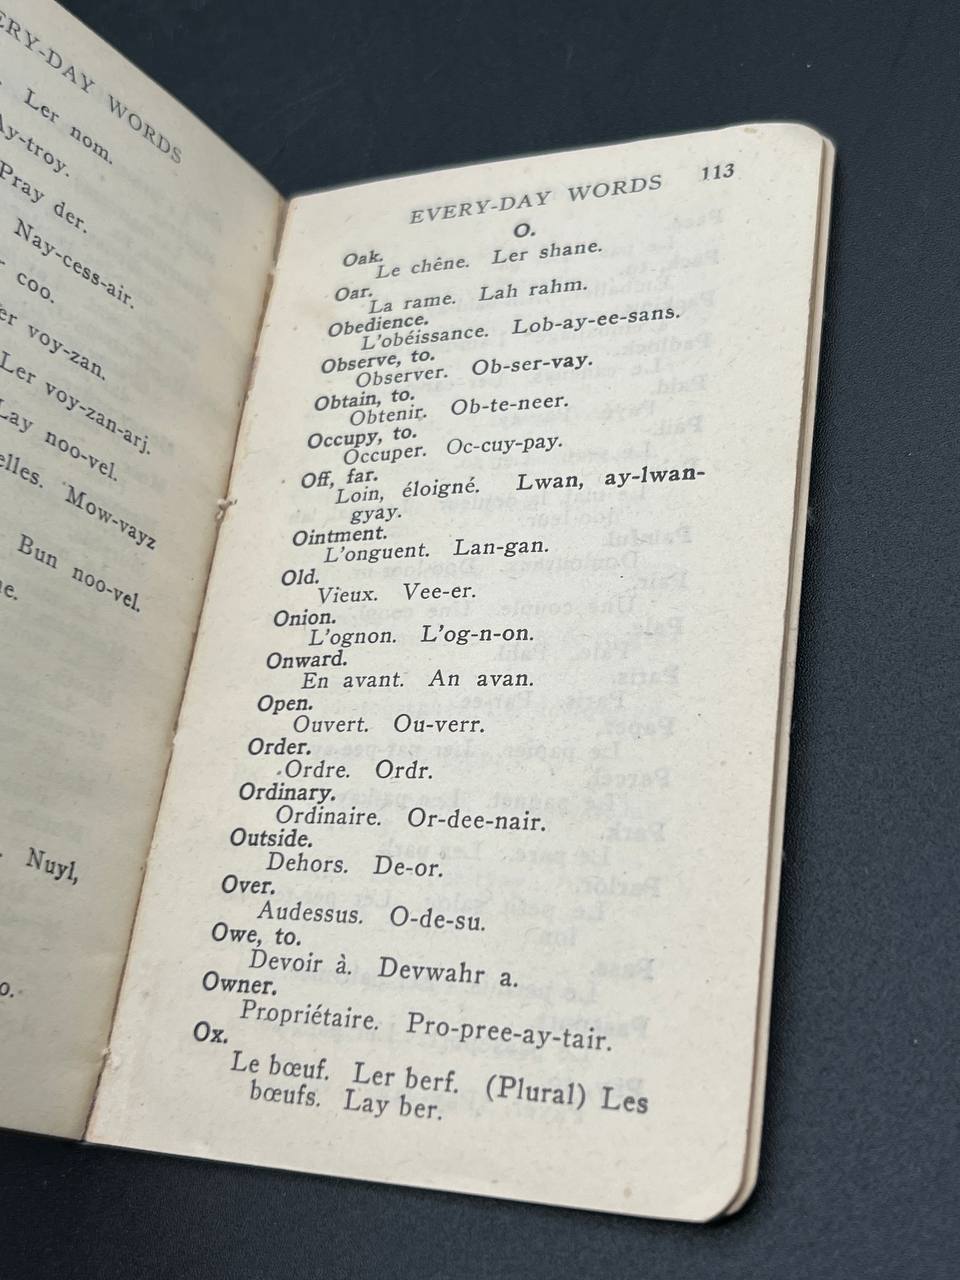 ERY-DAY WORDS
Ler nom.
Ay-troy.
Pray der.
Nay-cess-air.
coo.
er voy-zan.
Ler voy-zan-arj.
Lay noo-vel.
elles. Mow-vayz
Bun noo-vel.
e.
Nuyl,
o.
EVERY-DAY WORDS 113
O.
Oak.
Le chêne. Ler shane.
Oar.
La rame. Lah rahm.
Obedience.
L'obéissance. Lob-ay-ee-sans.
Observe, to.
Observer. Ob-ser-vay.
Obtain, to.
Obtenir. Ob-te-neer.
Occupy, to.
Occuper. Oc-cuy-pay.
Off, far.
Loin, éloigné. Lwan, ay-lwan-
gyay.
Ointment.
L'onguent. Lan-gan.
Old.
Vieux. Vee-er.
Onion.
L'ognon. L'og-n-on.
Onward.
En avant. An avan.
Open.
Ouvert. Ou-verr.
Order.
Ordre. Ordr.
Ordinary.
Ordinaire. Or-dee-nair.
Outside.
Dehors. De-or.
Over.
Audessus. O-de-su.
Owe, to.
Devoir à. Devwahr a.
Owner.
Propriétaire. Pro-pree-ay-tair.
Ox.
Le bœuf. Ler berf. (Plural) Les
bœufs. Lay ber.